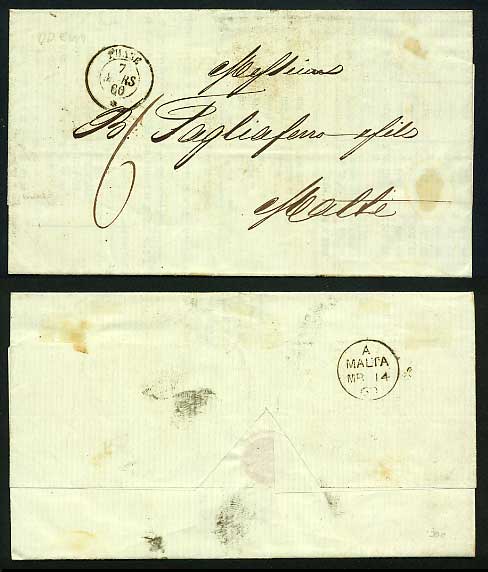 TUNIS
7
MARS
60
Messieurs
B. Tagliaferro e fils
Malte
6
A
MALTA
MR 14
60